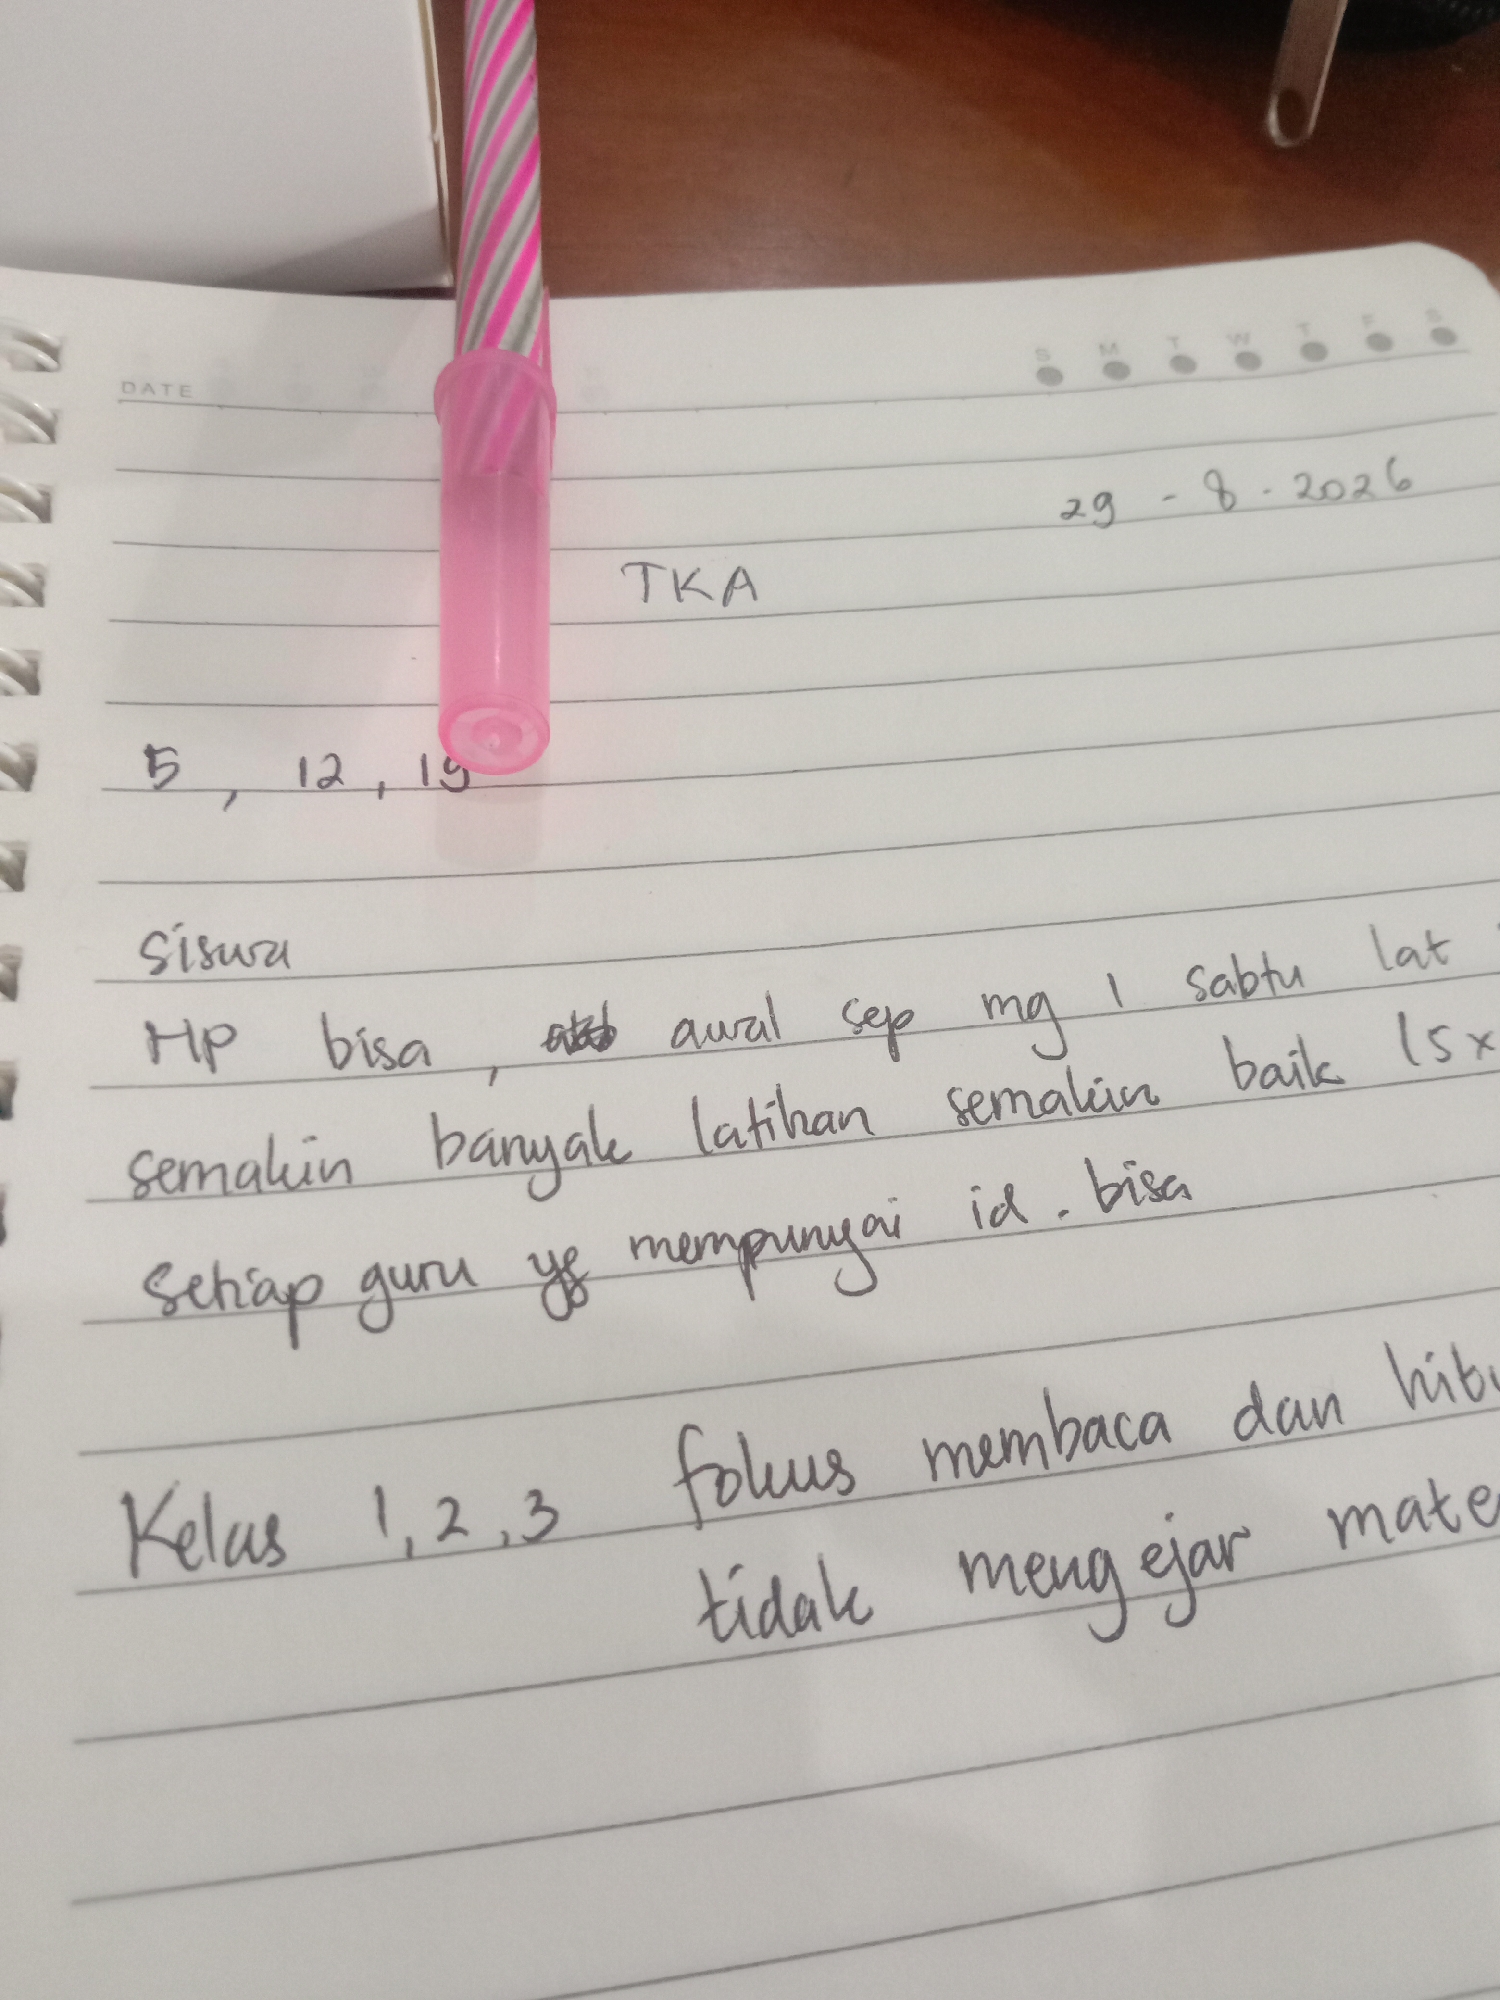 DATE
S M T W T F S
29 - 8 - 2026
TKA
5 , 12 , 19
Siswa
HP bisa , awal sep mg 1 sabtu lat
semakin banyak latihan semakin baik 15x
Setiap guru yg mempunyai id . bisa
Kelas 1, 2, 3 fokus membaca dan hitu
tidak mengejar mate